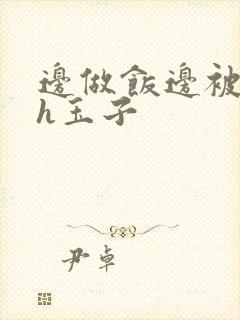 邊做飯邊被
h玉子
尹卓